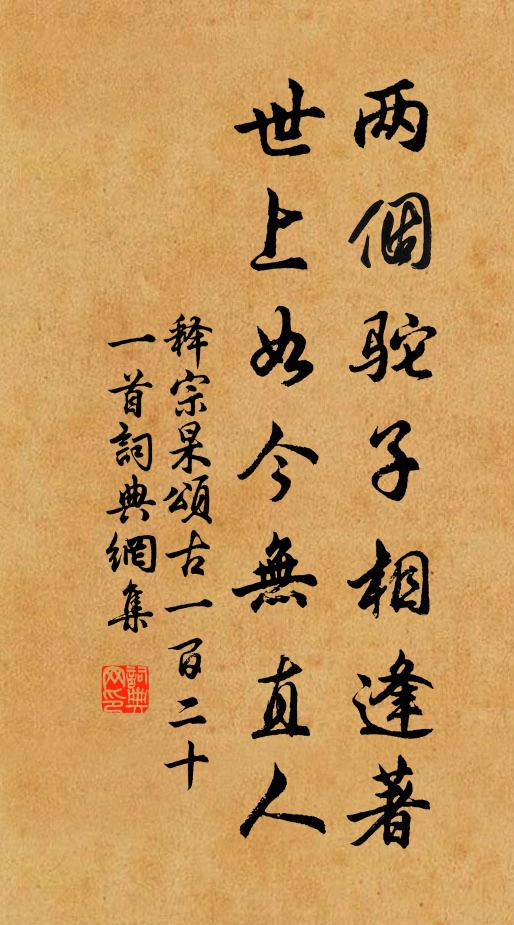 两個駝子相逢著
世上如今無直人
释宗杲頌古一百二十
一首詞典網集
詞典
网印